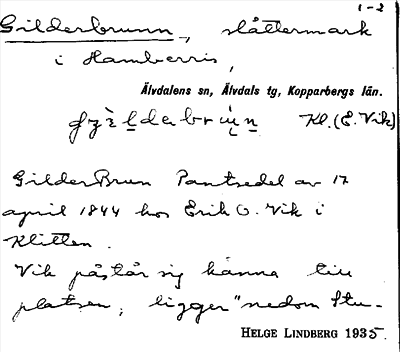 1-2
Gilderbrunn, slåttermark
i Hamberris,
Älvdalens sn, Älvdals tg, Kopparbergs län.
Kl. (E. Vik)
GilderBrun Pantsedel av 17
april 1844 hos Erik O. Vik i
Klitten.
Vik påstår sig känna till
platsen; ligger "nedom Stu-
HELGE LINDBERG 1935.